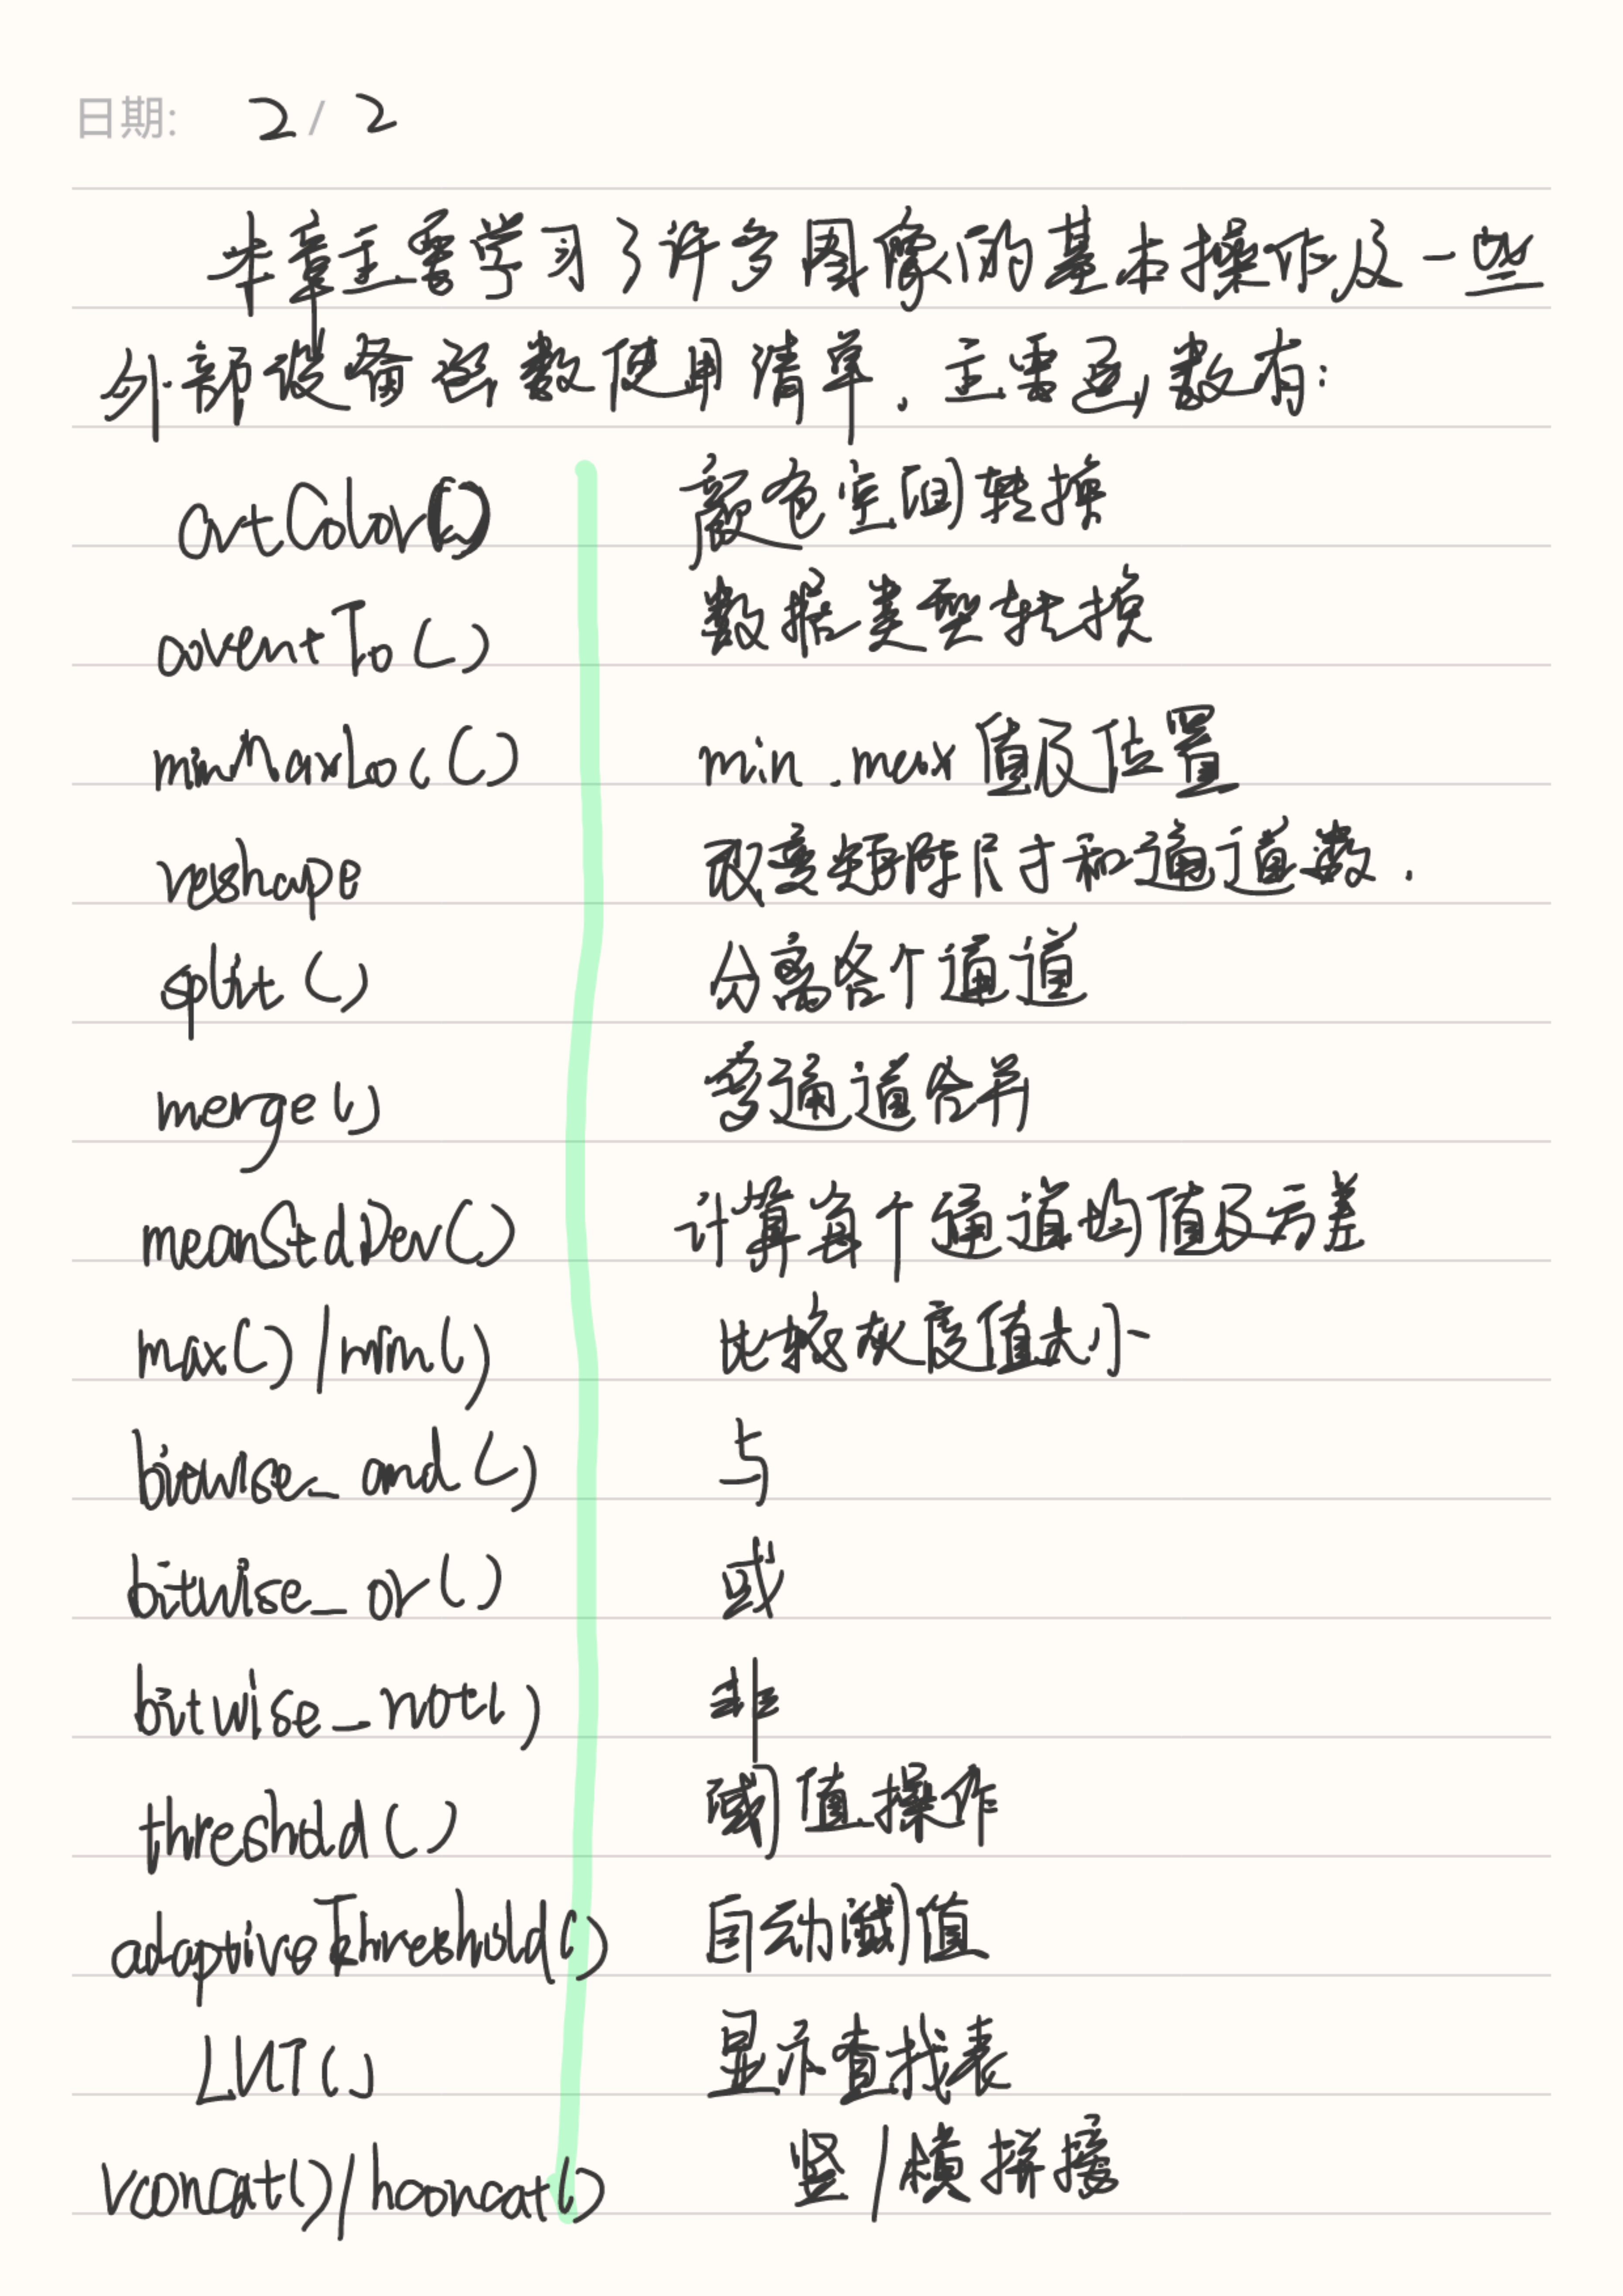 日期: 2 / 2
本章主要学习了许多图像的基本操作及一些
外部设备函数使用清单. 主要函数有:
cvtColor() 颜色空间转换
conventTo() 数据类型转换
minMaxLoc() min.max 值及位置
reshape 改变矩阵尺寸和通道数.
split() 分离各个通道
merge() 多通道合并
meanStdDev() 计算每个通道均值及方差
max()/min() 比较灰度值大小
bitwise_and() 与
bitwise_or() 或
bitwise_not() 非
threshold() 阈值操作
adaptiveThreshold() 自动阈值
LUT() 显示查找表
vconcat()/hconcat() 竖/横拼接